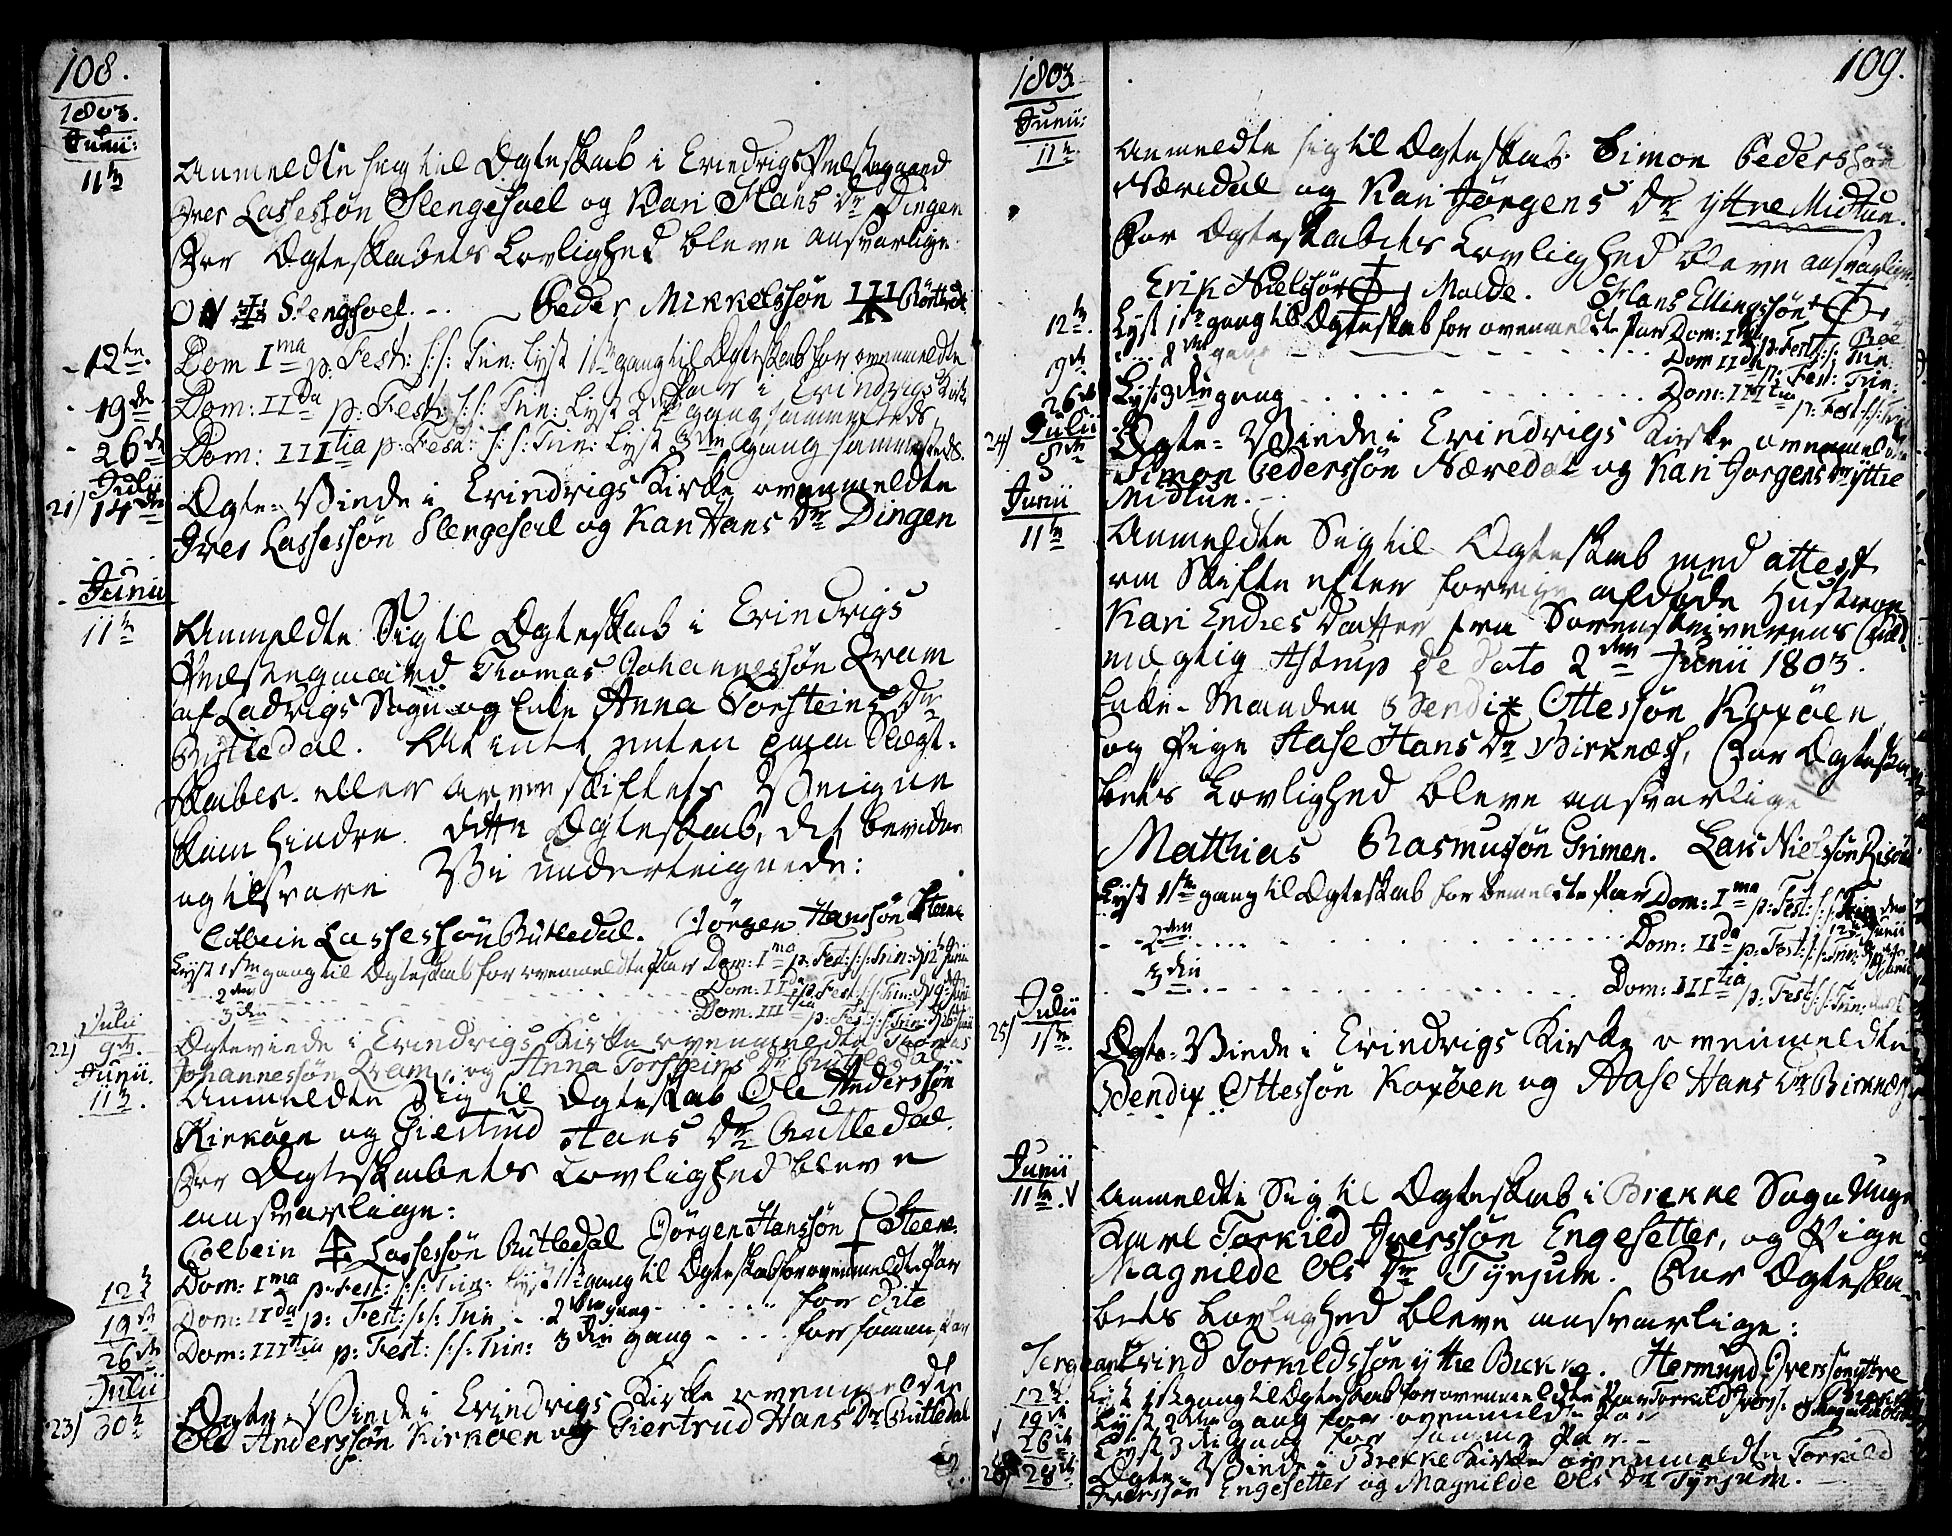 108.
1803.
Junii:
11te
Anmeldte sig til Ægteskab i Evindvigs Præstegaard
Iver Lassessøn Slengesoel og Kari Hans Dr Dingen
For Ægteskabets Lovlighed bleve ansvarlige
Slengesoel. Peder Mikkelssøn
12te. Dom Ima p. Fest: s: s: Trin: Lyst 1ste gang til Ægteskab for ovenmeldte
Par i Evindvigs Kirke
19de Dom: IIda p: Fest: s: s: Trin: Lyst 2den gang sammesteds
26de Dom: IIItia p: Fest: s: s: Trin: Lyst 3die gang sammesteds.
Julii
21) 14de Ægte-Viede i Evindvigs Kirke ovenmeldte
Iver Lassessøn Slengesoel og Kari Hans Dr Dingen
Junii
11te Anmeldte Sig til Ægteskab i Evindvigs
Præstegaard Thomas Johannessøn Qvam
af Ladvigs Sogn og Enke Anna Torsteins Dr
Rutledal. At intet enten paa Slægt-
skabes eller Arve skiftets Veigne
kan hindre dette Ægteskab, det bevidne
og tilsvare Vi underteignede:
Colbein Lassessøn Rutledal. Jørgen Hanssøn Steene
Lyst 1ste gang til Ægteskab for ovenmeldte Par Dom: Ima p: Fest: s: s: Trin: d 12te Junii
2den Dom: IIda p: Fest: s: s: Trin: d 19de Junii
3die Dom: IIItia p: Fest: s: s: Trin: d 26de Junii
Julii
22) 9de. Ægteviede i Evindvigs Kirke ovenmeldte Thomas
Johannessøn Qvam og Anna Torsteins Dr Rutledal
Junii.
11te. Anmeldte Sig til Ægteskab Ole Anderssøn
Kirkøen og Giertrud Hans Dr Rutledal.
For Ægteskabets Lovlighed bleve
ansvarlige:
Colbein Lassessøn Rutledal Jørgen Hanssøn Steene.
12te Dom: Ima p: Fest: s: s: Trin: Lyst 1ste gang til Ægteskab for ovenmeldte Par
19de Dom: IIda p: Fest: s: s: Trin - 2den gang - for dite
26de Dom: IIItia p: Fest: s: s: Trin: 3die gang - for samme Par
Julii
23) 30te Ægte-Viede i Evindvigs Kirke ovenmeldte
Ole Anderssøn Kirkøen og Giertrud Hans Dr Rutledal
109.
1803.
Junii:
11te. Anmeldte sig til Ægteskab Simon Pederssøn
Næredal og Kari Jørgens Dr yttre Midtun.
For Ægteskabets Lovlighed bleve ansvarlige
Erik Nielssøn Molde. Hans Ellingssøn
12te. Lyst 1ste gang til Ægteskab for ovenmeldte Par Dom: Ima p: Fest: s: s: Trin:
2den gang Dom IIda p: Fest: Trin:
26de Lyst 3die gang Dom: IIItia p: Fest: s: s: Trin
Julii
24) Ægte-Viede i Evindvigs Kirke ovenmeldte
Simon Pederssøn Næredal og Kari Jørgens Dr yttre
Midtun.
Junii
11te Anmeldte Sig til Ægteskab med attest
om Skifte efter forrige afdøde Hustroe
Kari Endres Datter fra Sorenskriverens Fuld-
mægtig Astrup de dato 2den Junii 1803.
Enke-Manden Bendix Ottessøn Koxøen
og Pige Aase Hans Dr Birknæs, For Ægteska-
bets Lovlighed bleve ansvarlige
Matthias Rasmussøn Grimen. Lars Nielssøn Risøe
Lyst 1ste gang til Ægteskab for bemeldte Par Dom: Ima p: Fest: s: s: Trin den 12te Junii
2den Dom: IIda p: Fest: s: s: Trin: d 19de Junii
3die Dom: IIItia p: Fest: s: s: Trin: d 26
Julii
25) 1ste. Ægte-Viede i Evindvigs Kirke ovenmeldte
Bendix Ottessøn Koxøen og Aase Hans Dr Birknæs
Junii
11te. Anmeldte Sig til Ægteskab i Brekke Sogn Unge
Karl Torkild Iverssøn Engesetter, og Pige
Magnilde Ols Dr Tynjum. For Ægteska-
bets Lovlighed bleve ansvarlige:
Sergeant Erind Torkildssøn yttre Brekke. Hermund Iverssøn yttre Brekke
12te. Lyst 1ste gang til Ægteskab for ovenmeldte Par Torkild Ivers. og Magnilde Ols
19de Lyst 2den gang for ovenmeldte Par
26de Lyst 3die gang for samme Par.
28de. Ægte-Viede i Brekke Kirke ovenmeldte Torkild
Iverssøn Engesetter og Magnilde Ols Dr Tynjum.